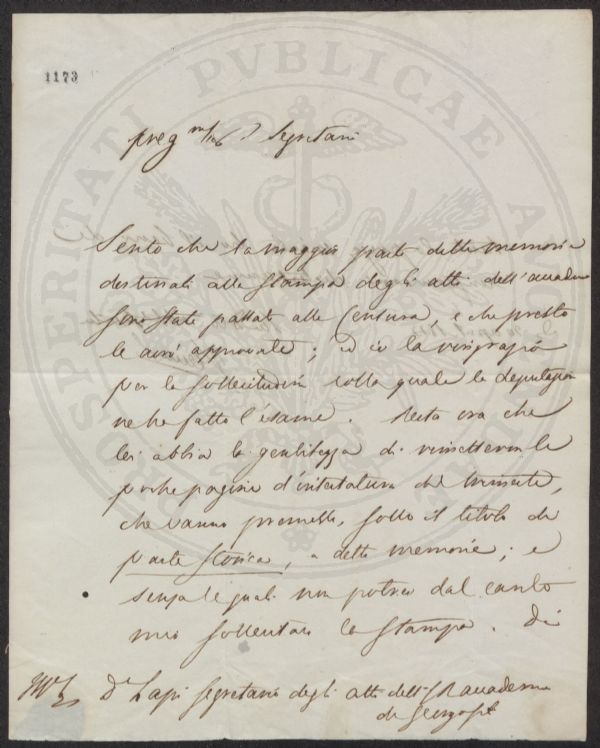 1173
PROSPERITATI PVBLICAE AVGENDAE
preg.mo Sr Segretario
Sento che la maggior parte delle memorie
destinate alla stampa degli atti dell'accademia
sono state passate alla Censura, e che presto
le avrò approvate; ed io la ringrazio
per la sollecitudine colla quale la deputazione
ne ha fatto l'esame. Resta ora che
lei abbia la gentilezza di rimettermi le
poche pagine d'intestatura del trimestre,
che vanno premesse, sotto il titolo di
parte storica, a dette memorie; e
senza le quali non potrei dal canto
mio sollecitare la stampa. Di
Dr Lapi Segretario degli atti dell'I R accademia
de Georgofili